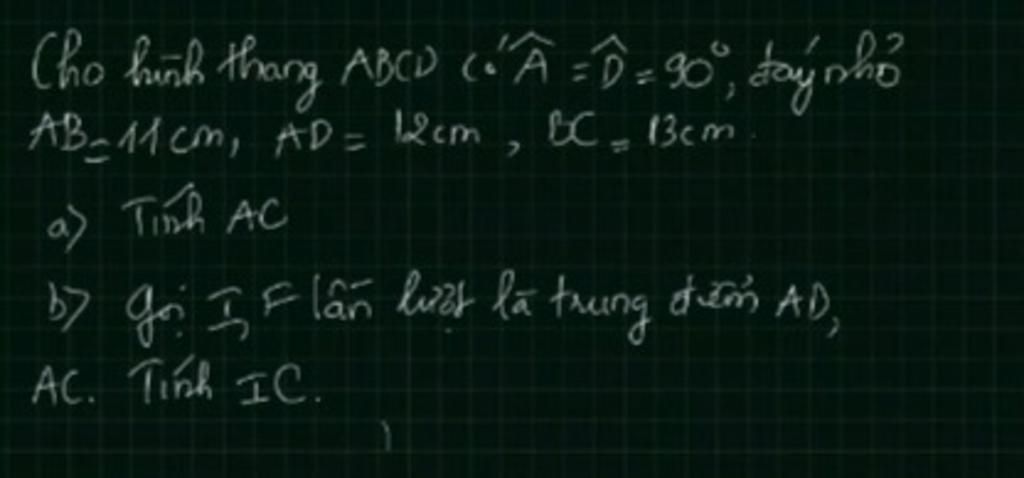 Cho hình thang ABCD có Â = D̂ = 90°, đáy nhỏ
AB = 11cm, AD = 12cm, BC = 13cm.
a) Tính AC
b) gọi I, F lần lượt là trung điểm AD,
AC. Tính IC.